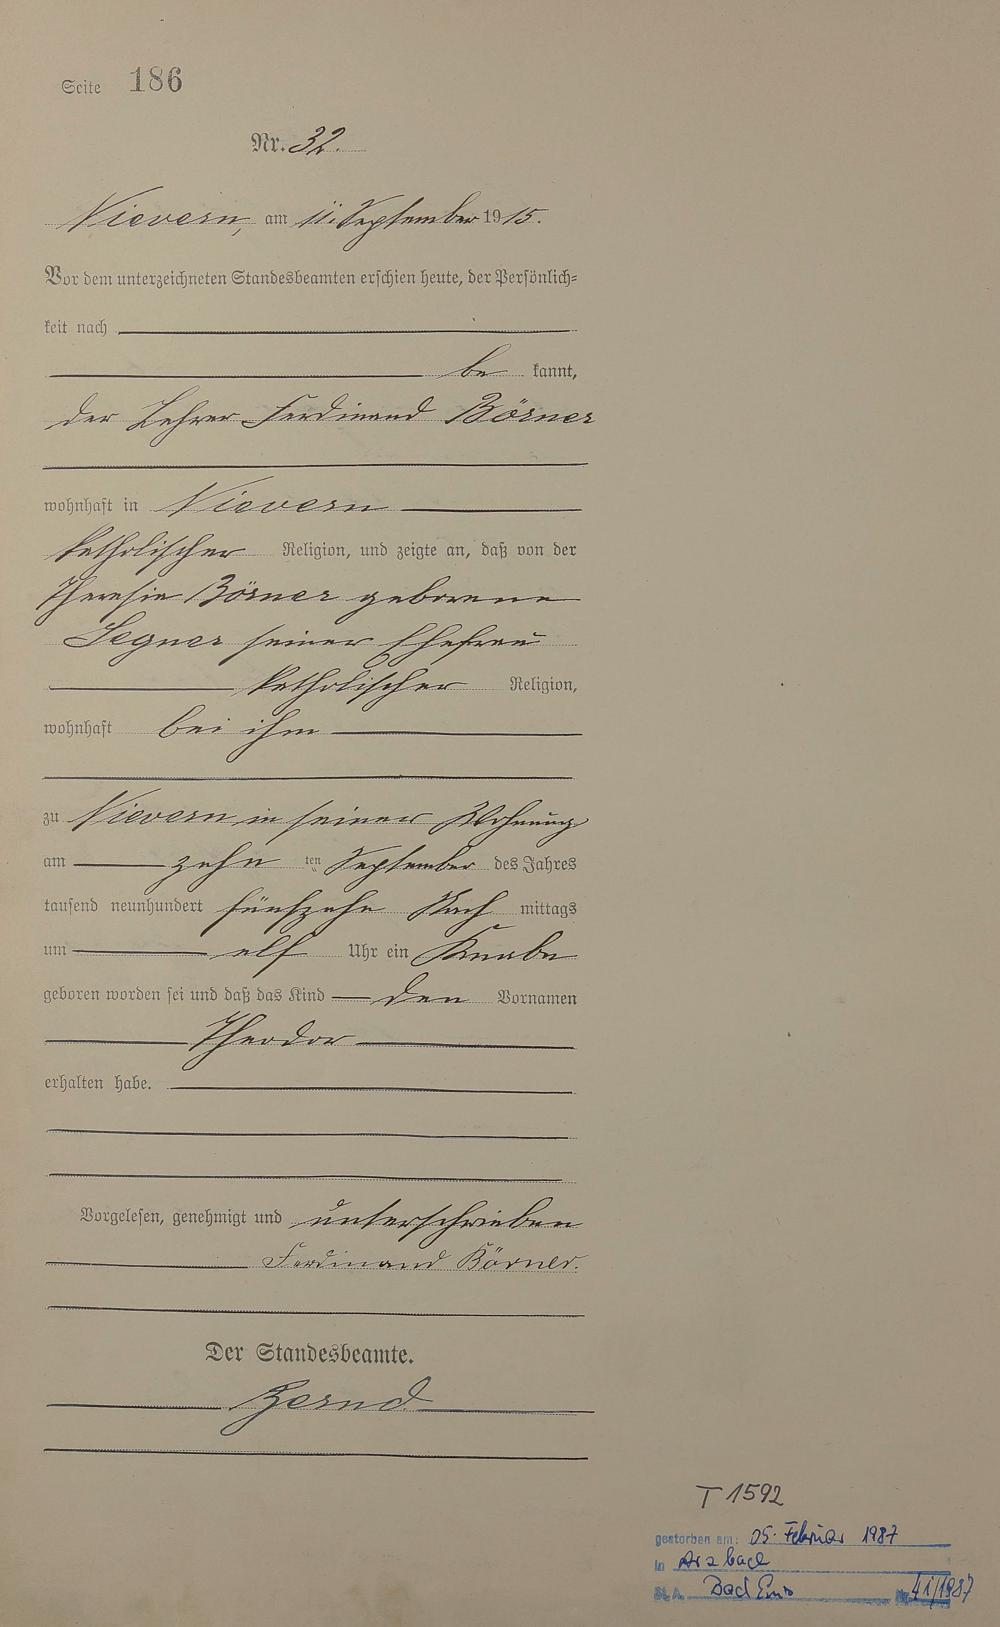 Seite 186
Nr. 32.
Nievern, am 11. September 1915.
Vor dem unterzeichneten Standesbeamten erschien heute, der Persönlich-
keit nach
be kannt,
der Lehrer Ferdinand Börner
wohnhaft in Nievern
katholischer Religion, und zeigte an, daß von der
Theresia Börner geborene
Segner seiner Ehefrau
katholischer Religion,
wohnhaft bei ihm
zu Nievern in seiner Wohnung
am zehn ten September des Jahres
tausend neunhundert fünfzehn Nach mittags
um elf Uhr ein Knabe
geboren worden sei und daß das Kind den Vornamen
Theodor
erhalten habe.
Vorgelesen, genehmigt und unterschrieben
Ferdinand Börner.
Der Standesbeamte.
T 1592
gestorben am: 05. Februar 1987
in Arzbach
St. A. Bad Ems Nr. 41/1987